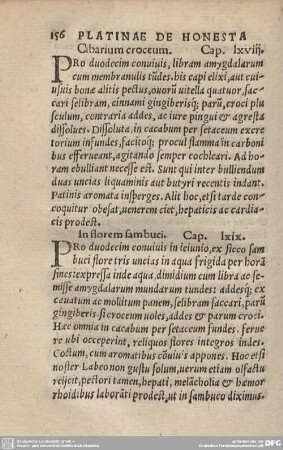 156 PLATINAE DE HONESTA
Cibarium croceum. Cap. lxviij.
PRo duodecim conuiuis, libram amygdalarum
cum membranulis tūdes. his capi elixi, aut cui
usuis bonæ alitis pectus, ouorū uitella quatuor, sac
cari selibram, cinnami gingiberisq; parū, croci plu
sculum, contraria addes, ac iure pingui & agresta
dissolues. Dissoluta, in cacabum per setaceum excre
torium infundes, facitoq; procul flamma in carboni
bus efferueant, agitando semper cochleari. Ad ho-
ram ebulliant necesse est. Sunt qui inter bulliendum
duas uncias liquaminis aut butyri recentis indant.
Patinis aromata insperges. Alit hoc, etsi tarde con
coquitur obesat, uenerem ciet, hepaticis ac cardia-
cis prodest.
In florem sambuci. Cap. lxix.
PRo duodecim conuiuis in ieiunio, ex sicco sam
buci flore tris uncias in aqua frigida per horā
sines: expressa inde aqua, dimidium cum libra ac se-
misse amygdalarum mundarum tundes: addesq; ex
cauatum ac mollitum panem, selibram saccari, parū
gingiberis. si croceum uoles, addes & parum croci.
Hæc omnia in cacabum per setaceum fundes. ferue
re ubi occeperint, reliquos flores integros indes.
Coctum, cum aromatibus cōuiuis appones. Hoc etsi
noster Labeo non gustu solum, uerum etiam olfactu
reijcit, pectori tamen, hepati, melācholiæ & hæmor
rhoidibus laborāti prodest, ut in sambuco diximus.